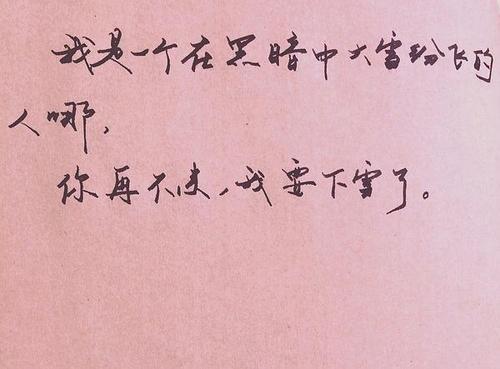 我是一个在黑暗中大雪纷飞的
人哪,
你再不来,我要下雪了。